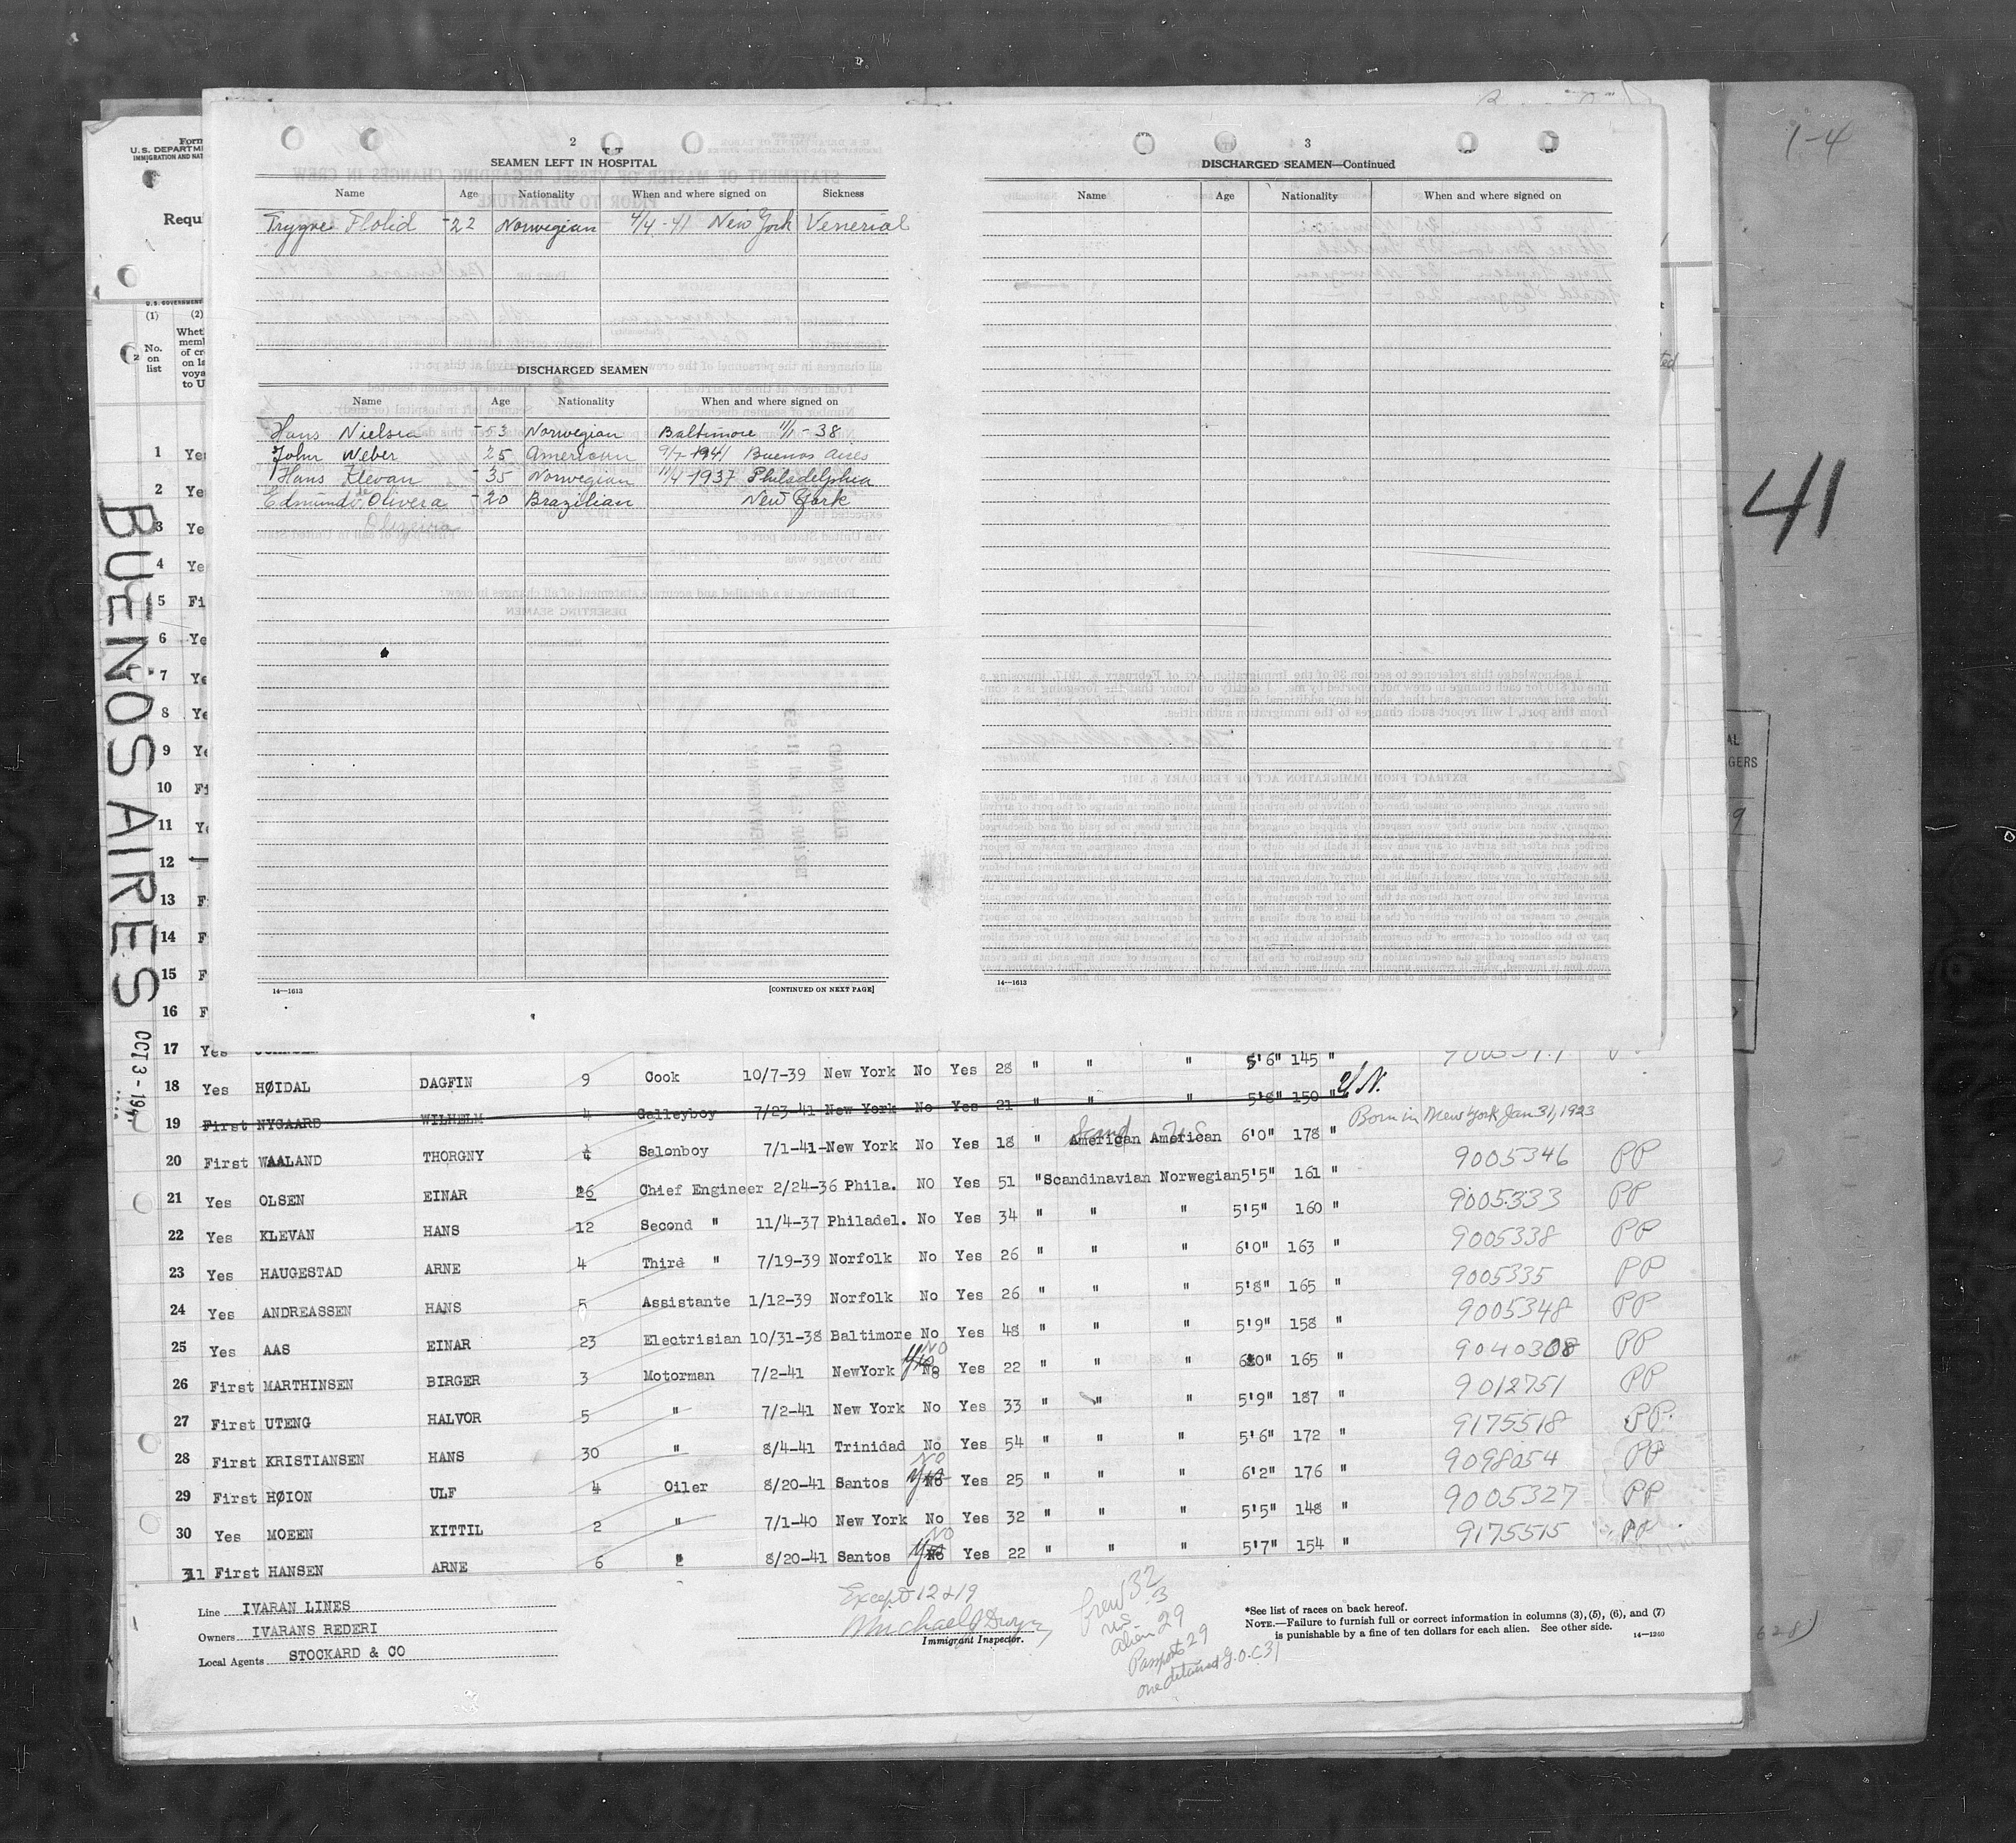 1-4
41
2
SEAMEN LEFT IN HOSPITAL
Name Age Nationality When and where signed on Sickness
Trygve Flolid 22 Norwegian 4/4-41 New York Venerial
DISCHARGED SEAMEN
Name Age Nationality When and where signed on
Hans Nielsen 53 Norwegian Baltimore 11/1-38
John Weber 25 American 9/7-1941 Buenos Aires
Hans Klevan 35 Norwegian 11/4-1937 Philadelphia
Edmundo Olivera 20 Brazilian New York
14—1613 [CONTINUED ON NEXT PAGE]
3
DISCHARGED SEAMEN—Continued
Name Age Nationality When and where signed on
14—1613
Form
U.S. DEPARTME
IMMIGRATION AND NAT
Requi
U.S. GOVERNMENT
(1) (2)
No. on list
Whet
memb
of cre
on la
voya
to U
1 Yes
2 Ye
3 Ye
4 Ye
5 Fi
6 Ye
7 Ye
8 Ye
9 Ye
10 Fi
11 Ye
12
13 F
14 F
15 F
16 F
17 Yes 5'6" 145 "
BUENOS AIRES
OCT 3 - 1941
18 Yes HØIDAL DAGFIN 9 Cook 10/7-39 New York No Yes 28 " " "
19 First NYGAARD WILHELM 4 Galleyboy 7/23-41 New York No Yes 21 " " " 5'8" 150 "
Born in New York Jan 31, 1923
20 First WAALAND THORGNY 4 Salonboy 7/1-41-New York No Yes 18 " American American 6'0" 178 "
Scand U.S.
21 Yes OLSEN EINAR 26 Chief Engineer 2/24-36 Phila. NO Yes 51 "Scandinavian Norwegian 5'5" 161 " 9005346 PP
22 Yes KLEVAN HANS 12 Second " 11/4-37 Philadel. No Yes 34 " " " 5'5" 160 " 9005333 PP
23 Yes HAUGESTAD ARNE 4 Third " 7/19-39 Norfolk No Yes 26 " " " 6'0" 163 " 9005338 PP
24 Yes ANDREASSEN HANS 5 Assistante 1/12-39 Norfolk No Yes 26 " " " 5'8" 165 " 9005335 PP
25 Yes AAS EINAR 23 Electrisian 10/31-38 Baltimore No Yes 48 " " " 5'9" 158 " 9005348 PP
26 First MARTHINSEN BIRGER 3 Motorman 7/2-41 NewYork No NO Yes 22 " " " 6'0" 165 " 9040308 PP
27 First UTENG HALVOR 5 " 7/2-41 New York No Yes 33 " " " 5'9" 187 " 9012751 PP
28 First KRISTIANSEN HANS 30 " 8/4-41 Trinidad No Yes 54 " " " 5'6" 172 " 9175518 PP
29 First HØION ULF 4 Oiler 8/20-41 Santos No NO Yes 25 " " " 6'2" 176 " 9098054 PP
30 Yes MOEEN KITTIL 2 " 7/1-40 New York No Yes 32 " " " 5'5" 148 " 9005327 PP
31 First HANSEN ARNE 6 " 8/20-41 Santos No NO Yes 22 " " " 5'7" 154 " 9175515 PP
Line IVARAN LINES
Owners IVARANS REDERI
Local Agents STOCKARD & CO
Except 12 & 19
Immigrant Inspector.
Crew 32
US 3
Alien 29
Passport 29
one detained
*See list of races on back hereof.
NOTE.—Failure to furnish full or correct information in columns (3), (5), (6), and (7)
is punishable by a fine of ten dollars for each alien. See other side. 14—1240